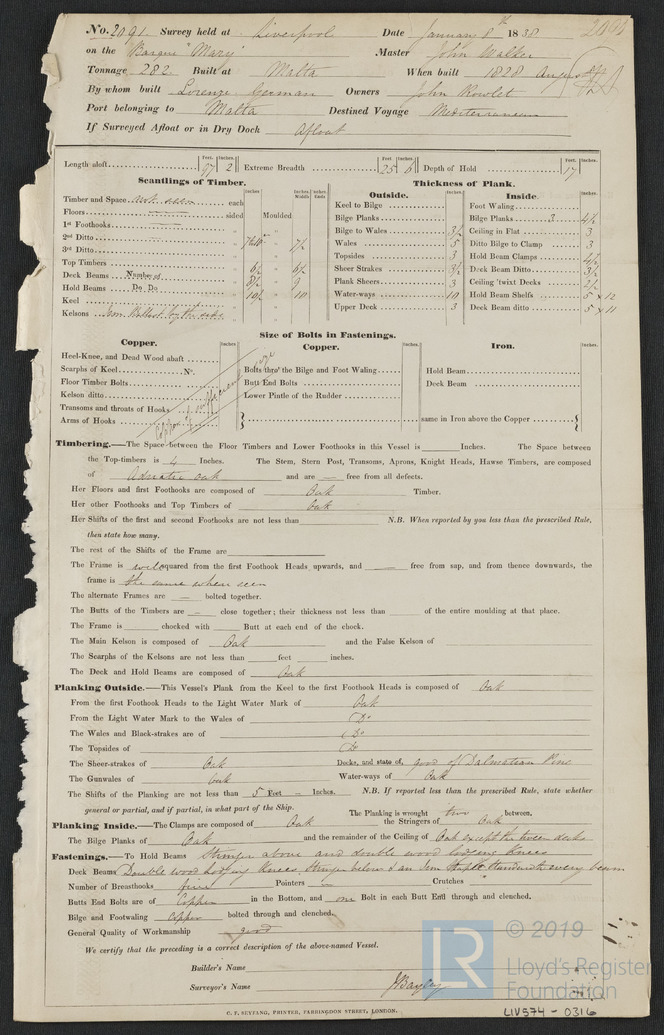 No. 2091. Survey held at Liverpool Date January 8th 1838 2091
on the Barque "Mary" Master John Walker
Tonnage 282 Built at Malta When built 1828 Augt
By whom built Lorenzo German Owners John Rowlet
Port belonging to Malta Destined Voyage Mediterranean
If Surveyed Afloat or in Dry Dock Afloat
Length aloft Feet. 97 Inches. 2 Extreme Breadth Feet. 25 Inches. 6 Depth of Hold Feet. 17 Inches.
Scantlings of Timber.
Timber and Space not seen each
Floors sided Moulded
1st Foothooks
2nd Ditto
3rd Ditto
Top Timbers 6½ 6½
Deck Beams Number of 8½ 9
Hold Beams Do. Do. 10½ 10
Keel
Kelsons
Thickness of Plank.
Outside.
Keel to Bilge
Bilge Planks
Bilge to Wales 3½
Wales 5
Topsides 3
Sheer Strakes 3½
Plank Sheers 3
Water-ways 10
Upper Deck 3
Inside.
Foot Waling
Bilge Planks 3 4½
Ceiling in Flat 3
Ditto Bilge to Clamp 3
Hold Beam Clamps 4½
Deck Beam Ditto 3½
Ceiling 'twixt Decks 2½
Hold Beam Shelfs 5 x 12
Deck Beam ditto 5 x 11
Size of Bolts in Fastenings.
Copper.
Heel-Knee, and Dead Wood abaft
Scarphs of Keel No.
Floor Timber Bolts
Kelson ditto
Transoms and throats of Hooks
Arms of Hooks
Copper of sufficient size
Copper.
Bolts thro' the Bilge and Foot Waling
Butt End Bolts
Lower Pintle of the Rudder
Iron.
Hold Beam
Deck Beam
same in Iron above the Copper
Timbering.—The Space between the Floor Timbers and Lower Foothooks in this Vessel is Inches. The Space between
the Top-timbers is 4 Inches. The Stem, Stern Post, Transoms, Aprons, Knight Heads, Hawse Timbers, are composed
of Adriatic oak and are — free from all defects.
Her Floors and first Foothooks are composed of Oak Timber.
Her other Foothooks and Top Timbers of Oak
Her Shifts of the first and second Foothooks are not less than N.B. When reported by you less than the prescribed Rule,
then state how many.
The rest of the Shifts of the Frame are
The Frame is well squared from the first Foothook Heads upwards, and — free from sap, and from thence downwards, the
frame is the same when seen
The alternate Frames are — bolted together.
The Butts of the Timbers are — close together; their thickness not less than of the entire moulding at that place.
The Frame is chocked with Butt at each end of the chock.
The Main Kelson is composed of Oak and the False Kelson of
The Scarphs of the Kelsons are not less than feet inches.
The Deck and Hold Beams are composed of Oak
Planking Outside.—This Vessel's Plank from the Keel to the first Foothook Heads is composed of Oak
From the first Foothook Heads to the Light Water Mark of Oak
From the Light Water Mark to the Wales of Do
The Wales and Black-strakes are of Do
The Topsides of Do
The Sheer-strakes of Oak Decks, and state of, good of Dalmatian Pine
The Gunwales of Oak Water-ways of Oak
The Shifts of the Planking are not less than 5 Feet — Inches. N.B. If reported less than the prescribed Rule, state whether
general or partial, and if partial, in what part of the Ship. The Planking is wrought two between.
Planking Inside.—The Clamps are composed of Oak the Stringers of Oak
The Bilge Planks of Oak and the remainder of the Ceiling of Oak except the tween decks
Fastenings.—To Hold Beams Stringer above and double wood lodging knees
Deck Beams Double wood lodging knees Stringer below & an Iron Staple Standard every beam
Number of Breasthooks five Pointers — Crutches
Butts End Bolts are of Copper in the Bottom, and one Bolt in each Butt End through and clenched.
Bilge and Footwaling copper bolted through and clenched.
General Quality of Workmanship good
We certify that the preceding is a correct description of the above-named Vessel.
Builder's Name
Surveyor's Name J Bayley
C. F. SEYFANG, PRINTER, FARRINGDON STREET, LONDON.
LR © 2019
Lloyd's Register
Foundation
LIV574 - 0316